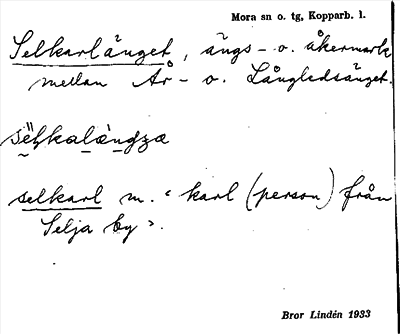 Mora sn o. tg, Kopparb. l.
Selkarlänget, ängs- o. åkermark
mellan År- o. Långledsänget.
selkarl m. "karl (person) från
Selja by".
Bror Lindén 1933